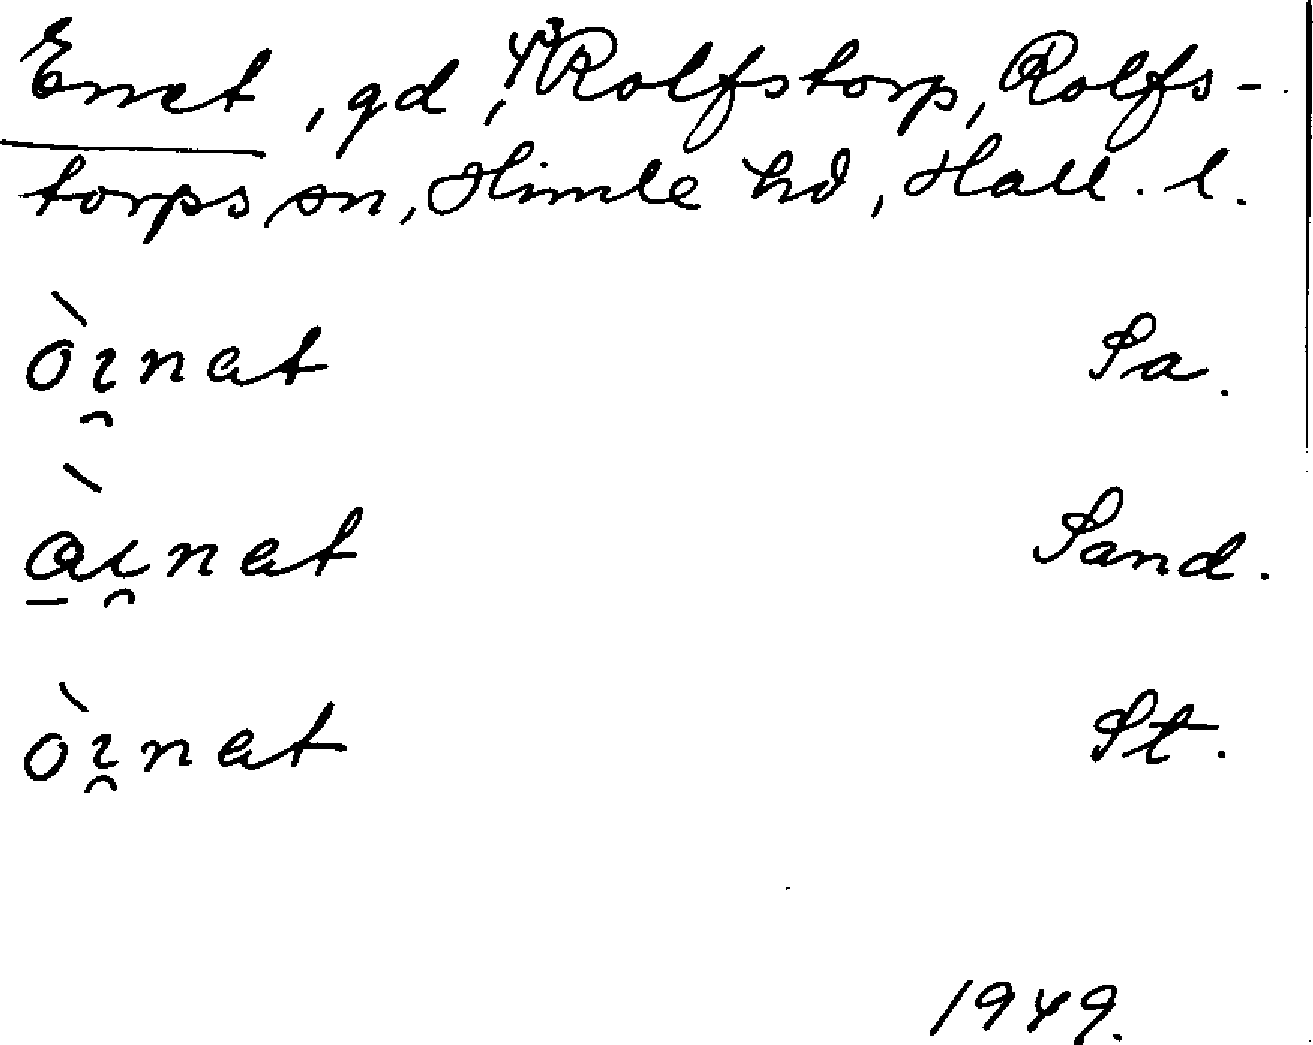 Enet, gd, 4³ Rolfstorp, Rolfs-
torps sn, Himle hd, Hall. l.
òı̯nat Sa.
à̱ı̯nat Sand.
òı̯nat St.
1949.